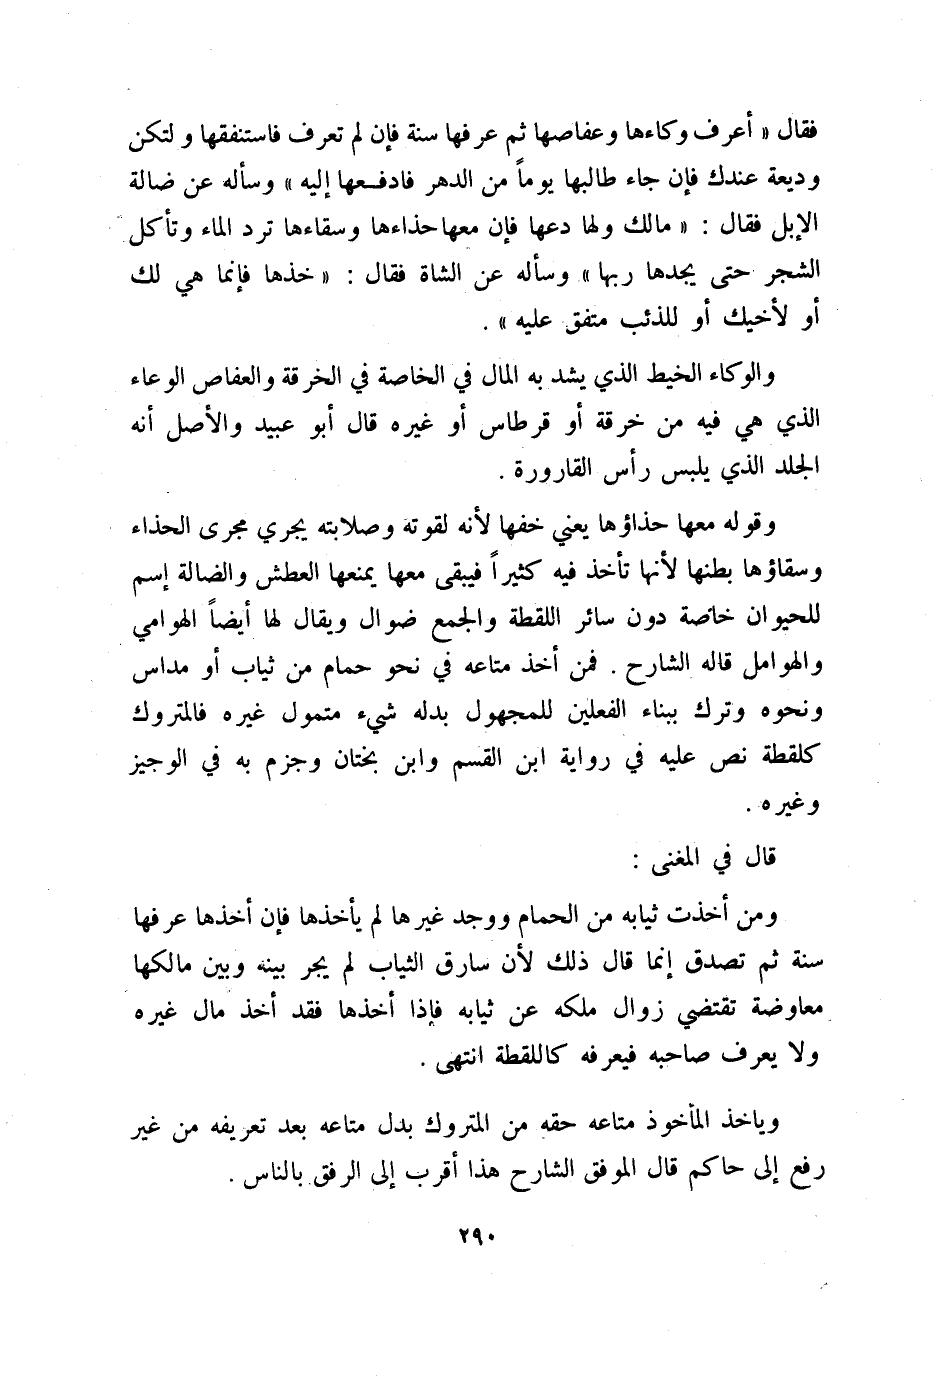 فقال « أعرف وكاءها وعفاصها ثم عرفها سنة فإن لم تعرف فاستنفقها ولتكن
وديعة عندك فإن جاء طالبها يوماً من الدهر فادفعها إليه » وسأله عن ضالة
الإبل فقال : « مالك ولها دعها فإن معها حذاءها وسقاءها ترد الماء وتأكل
الشجر حتى يجدها ربها » وسأله عن الشاة فقال : « خذها فإنما هي لك
أو لأخيك أو للذئب متفق عليه » .
والوكاء الخيط الذي يشد به المال في الخاصة في الخرقة والعفاص الوعاء
الذي هي فيه من خرقة أو قرطاس أو غيره قال أبو عبيد والأصل أنه
الجلد الذي يلبس رأس القارورة .
وقوله معها حذاؤها يعني خفها لأنه لقوته وصلابته يجري مجرى الحذاء
وسقاؤها بطنها لأنها تأخذ فيه كثيراً فيبقى معها يمنعها العطش والضالة إسم
للحيوان خاصة دون سائر اللقطة والجمع ضوال ويقال لها أيضاً الهوامي
والهوامل قاله الشارح . فمن أخذ متاعه في نحو حمام من ثياب أو مداس
ونحوه وترك ببناء الفعلين للمجهول بدله شيء متمول غيره فالمتروك
كلقطة نص عليه في رواية ابن القسم وابن بختان وجزم به في الوجيز
وغيره .
قال في المغنى :
ومن أخذت ثيابه من الحمام ووجد غيرها لم يأخذها فإن أخذها عرفها
سنة ثم تصدق إنما قال ذلك لأن سارق الثياب لم يجر بينه وبين مالكها
معاوضة تقتضي زوال ملكه عن ثيابه فإذا أخذها فقد أخذ مال غيره
ولا يعرف صاحبه فيعرفه كاللقطة انتهى .
وياخذ المأخوذ متاعه حقه من المتروك بدل متاعه بعد تعريفه من غير
رفع إلى حاكم قال الموفق الشارح هذا أقرب إلى الرفق بالناس .
٢٩٠